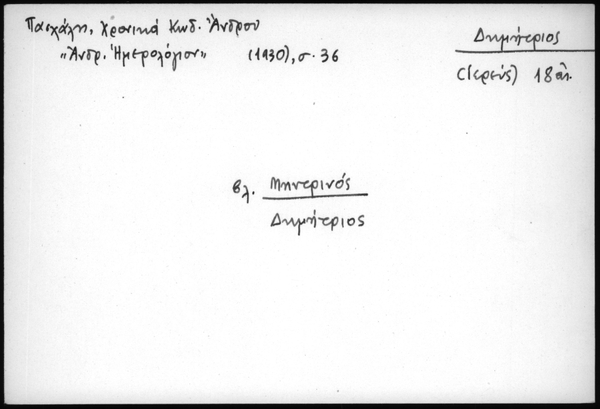 Πασχάλη, Χρονικά Κωδ. Ἄνδρου
"Ἀνδρ. Ἡμερολόγιον" (1930), σ. 36
Δημήτριος
(ἱερεύς) 18 αἰ.
βλ. Μηνερινός
Δημήτριος